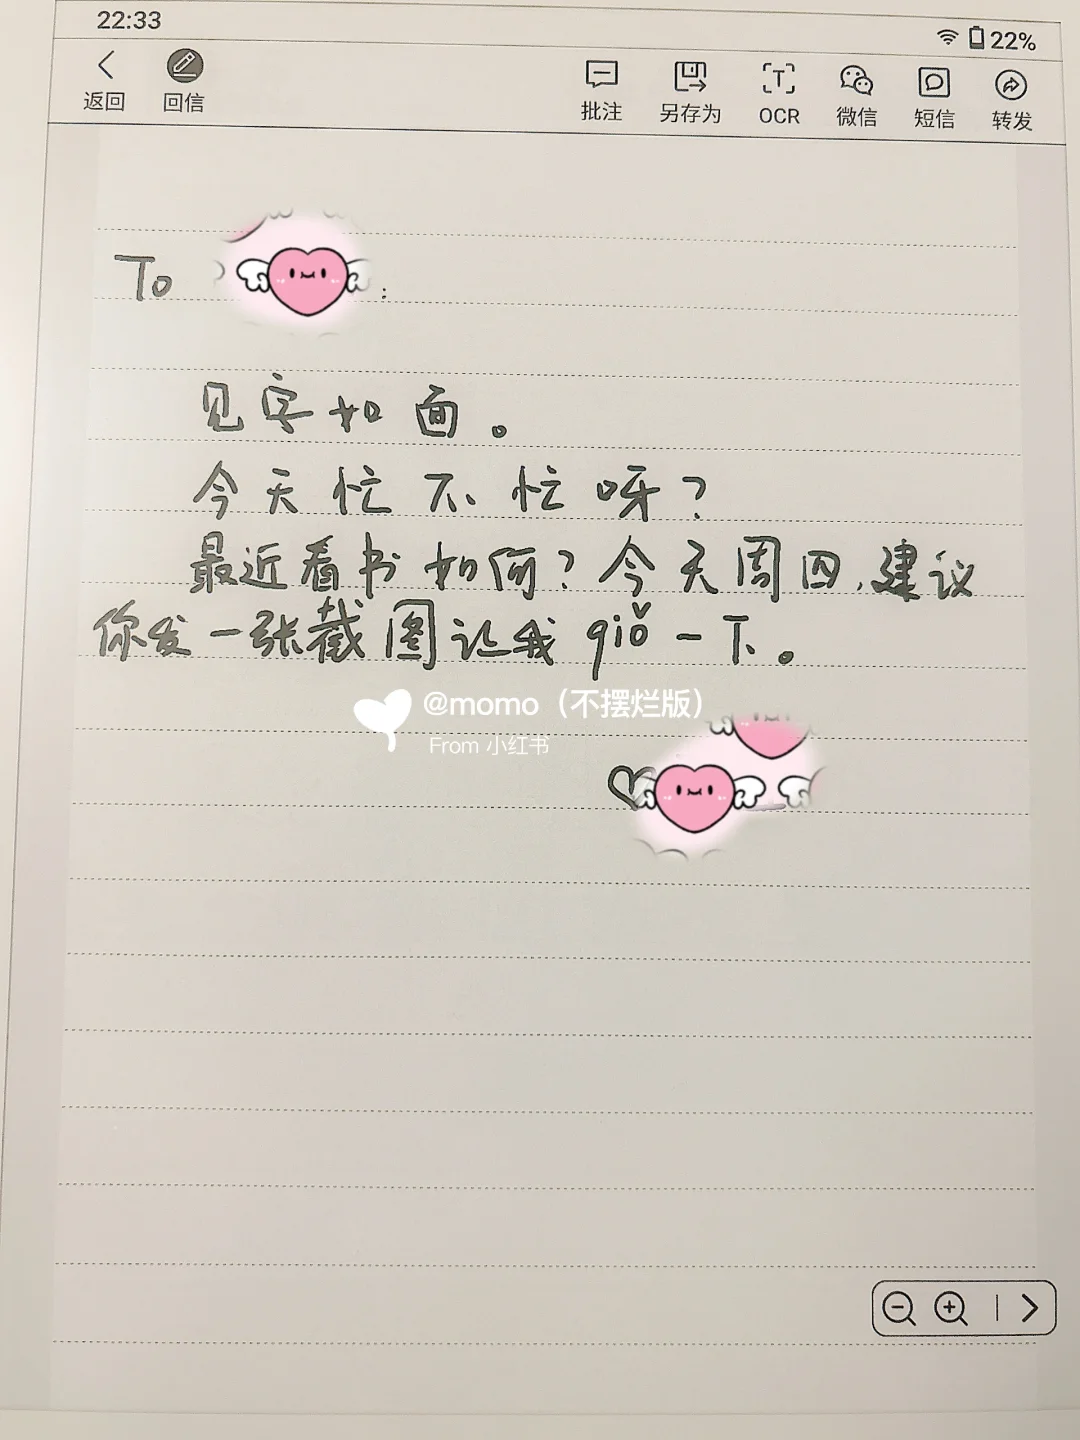 22:33
22%
返回 回信 批注 另存为 OCR 微信 短信 转发
To :
见字如面。
今天忙不忙呀?
最近看书如何?今天周四,建议
你发一张截图让我 qiǒ 一下。
@momo(不摆烂版)
From 小红书